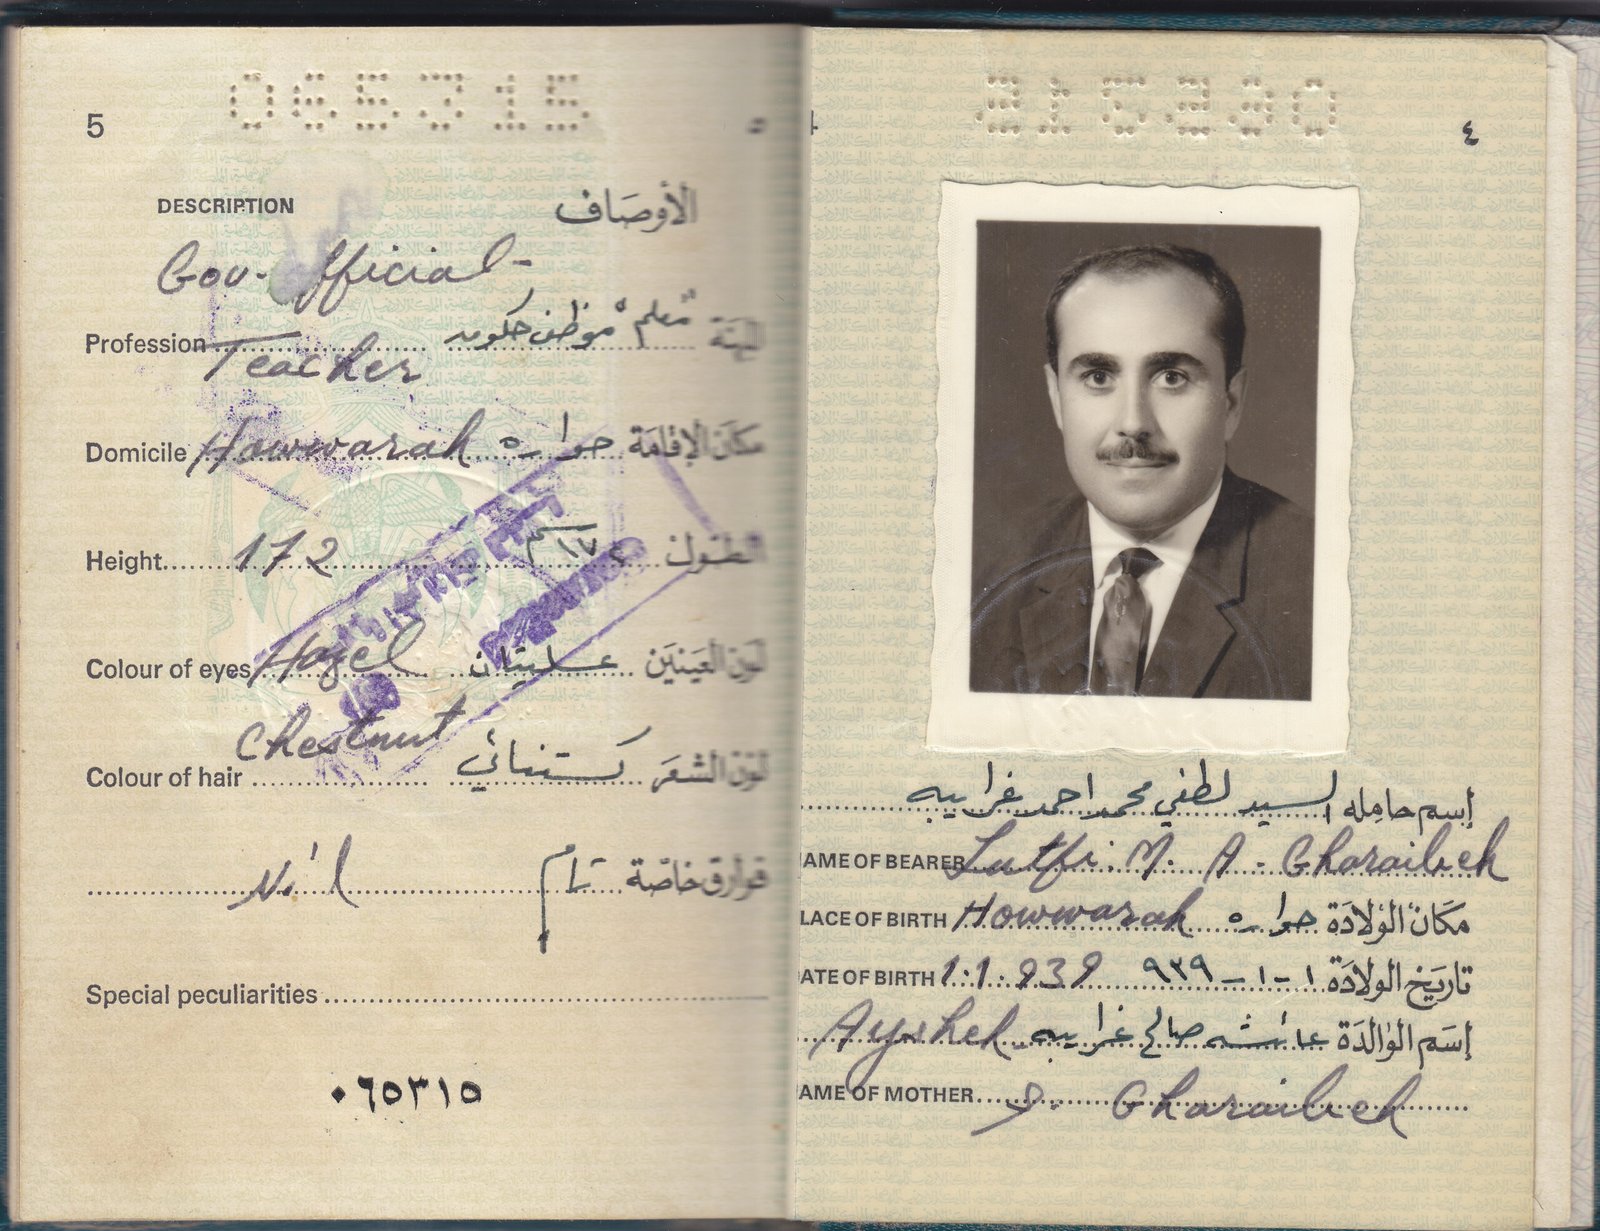 065315
5
٥
DESCRIPTION الأوصَاف
Gov. Official -
Profession Teacher معلم "موظف حكومه" المهنة
Domicile Howwarah حواره مكان الإقامَة
Height 172 ١٧٢ سم الطول
Colour of eyes Hazel عسليتان لون العينين
Colour of hair Chestnut كستنائي لون الشعر
Nil فوارق خاصّة
Special peculiarities
٠٦٥٣١٥
065315
٤
إسم حامله السيد لطفي محمد احمد غرايبه
NAME OF BEARER Lutfi. M. A. Gharaibeh
PLACE OF BIRTH Howwarah حواره مكان الولادة
DATE OF BIRTH 1.1.939 ١-١-٩٣٩ تاريخ الولادة
Aysheh عائشه صالح غرايبه إسم الوالدة
NAME OF MOTHER S. Gharaibeh